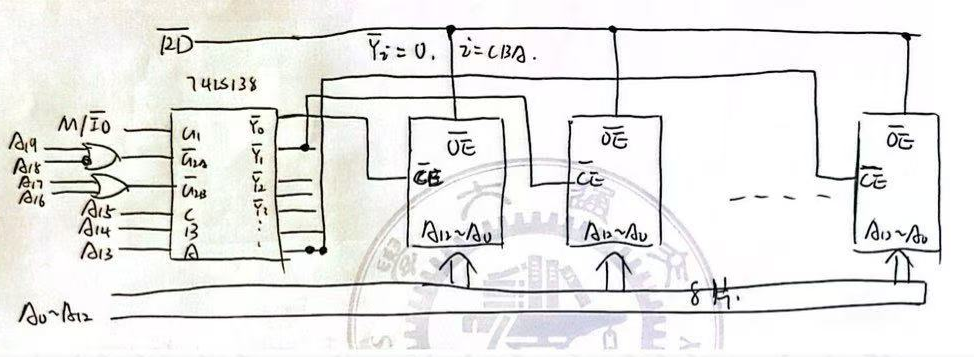 R̅D̅
Y̅i = 0. i = CBA.
74LS138
M/I̅O̅
A19
A18
A17
A16
A15
A14
A13
G1
G̅2A
G̅2B
C
B
A
Y̅0
Y̅1
Y̅2
Y̅3
⋮
O̅E̅
C̅E̅
A12~A0
O̅E̅
C̅E̅
A12~A0
O̅E̅
C̅E̅
A12~A0
8片.
A0~A12
交 通